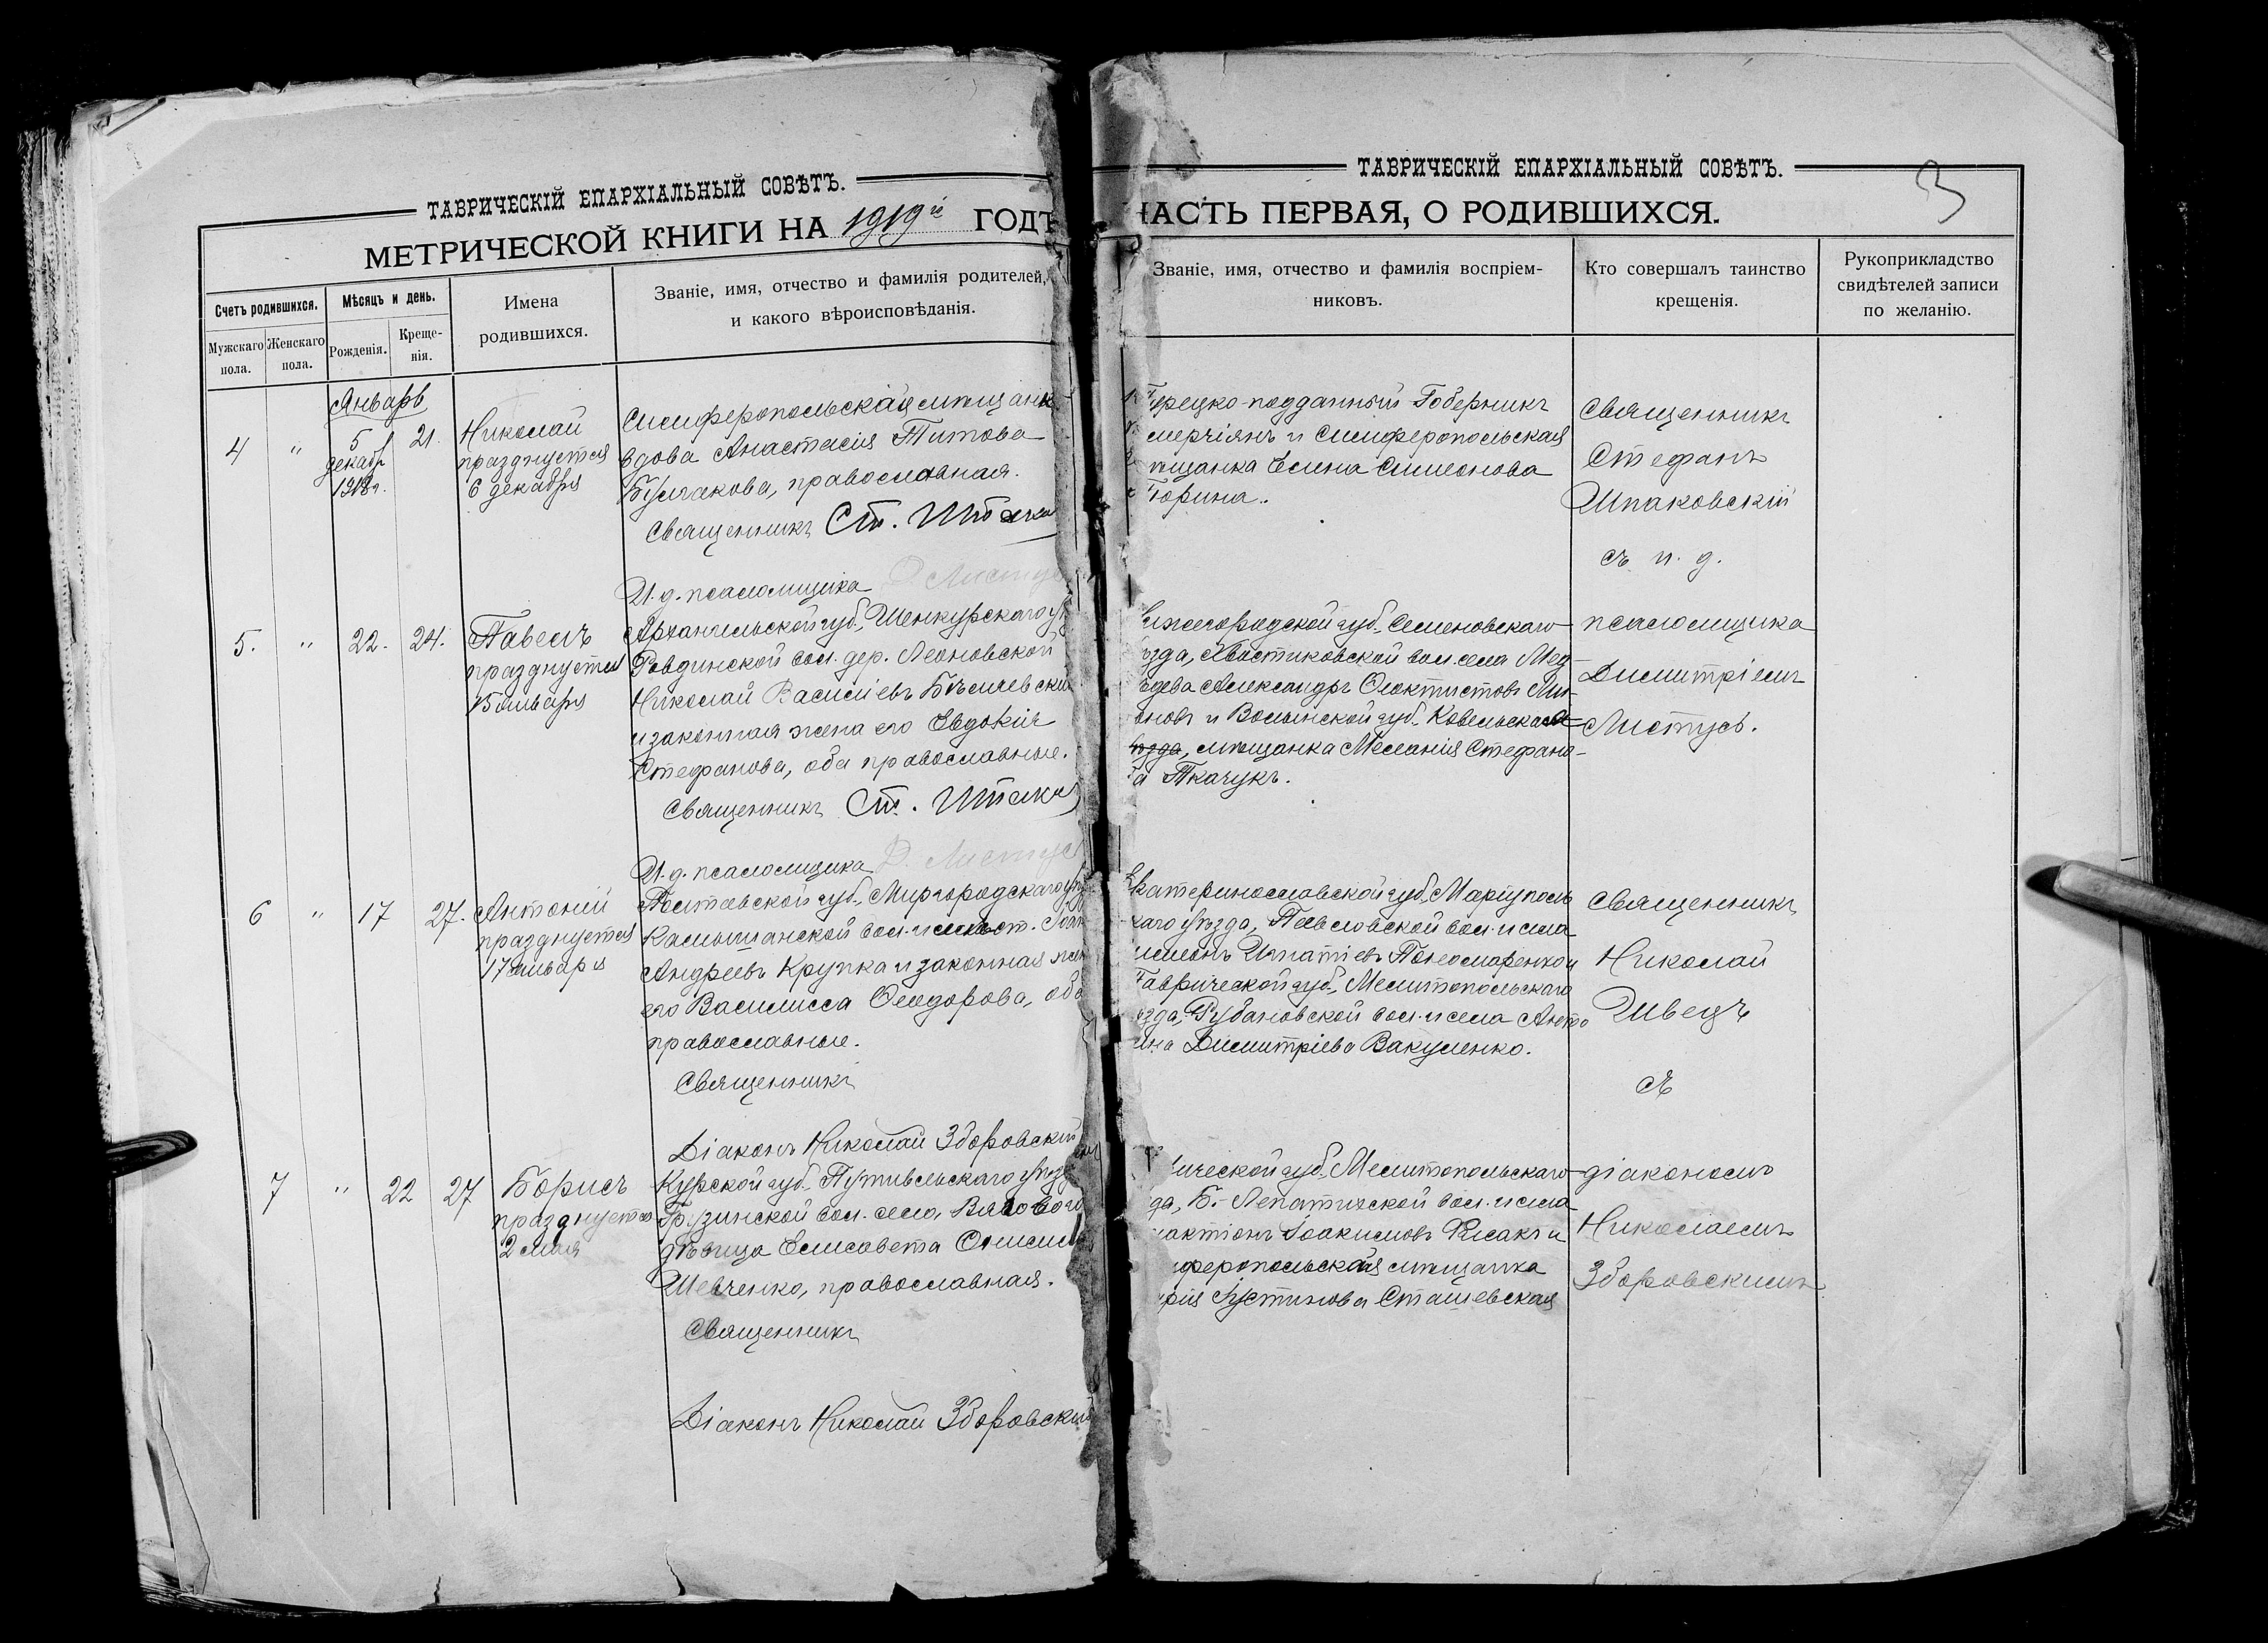 ТАВРИЧЕСКІЙ ЕПАРХІАЛЬНЫЙ СОВѢТЪ.
МЕТРИЧЕСКОЙ КНИГИ НА 1919й ГОДЪ
Счетъ родившихся.
Мужскаго пола.
Женскаго пола.
Мѣсяцъ и день.
Рожденія.
Креще-
нія.
Имена
родившихся.
Званіе, имя, отчество и фамилія родителей,
и какого вѣроисповѣданія.
Январь
4 " 5 21.
декабр
1918 г.
Николай
празднуется
6 декабря
Симферопольская мѣщанк
вдова Анастасія Титова
Булгакова, православная.
Священникъ Ст.
И.д. псаломщика Д. Листу
5. " 22. 24.
Павелъ
празднуется
15 января
Архангельской губ., Шенкурскаго у
Ровдинской вол. дер. Леоновской
Николай Василіевъ
и законная жена его Евдокія
Стефанова, оба православные.
Священникъ Ст.
И.д. псаломщика Д. Листус
6 " 17 27.
Антоній
празднуется
17 января
Полтавской губ., Миргородскаго уѣз
Камышанской вол. и мѣст.
Андреевъ Крупка и законная жен
его Василисса Ѳеодорова, оба
православные.
Священникъ
Діаконъ Николай Зборовскій
7 " 22 27
Борисъ
празднуется
2 мая
Курской губ. Путивльскаго уѣзд
Грузинской вол. села,
дѣвица Елисавета
Шевченко, православная.
Священникъ
Діаконъ Николай Зборовскій
ТАВРИЧЕСКІЙ ЕПАРХІАЛЬНЫЙ СОВѢТЪ.
3
ЧАСТЬ ПЕРВАЯ, О РОДИВШИХСЯ.
Званіе, имя, отчество и фамилія воспріем-
никовъ.
Кто совершалъ таинство
крещенія.
Рукоприкладство
свидѣтелей записи
по желанію.
Турецко-подданный Гоберникъ
и Симферопольская
мѣщанка Елена Симеонова
Тюрина.
Священникъ
Стефанъ
Шпаковскій
съ и. д.
псаломщика
Димитріемъ
Листусъ.
Нижегородской губ., Семеновскаго
уѣзда, Хвостиковской вол. села Мед-
Александръ Ѳеоктистовъ
и Волынской губ. Ковельская
уѣзда, мѣщанка Меланія Стефано-
ва Ткачукъ.
Екатеринославской губ., Маріуполь
скаго уѣзда, Павловской вол. и села
Симеонъ Игнатіевъ Пономаренко и
Таврической губ., Мелитопольскаго
уѣзда, Рубановской вол. и села Анто
нина Димитріева Вакуленко.
Священникъ
Николай
Швецъ
съ
рической губ. Мелитопольскаго
да, Б.-Лепатихской вол. и села
лактіонъ Іоакимовъ и
иферопольская мѣщанка
арія Іустинова Сташевская
діакономъ
Николаемъ
Зборовскимъ